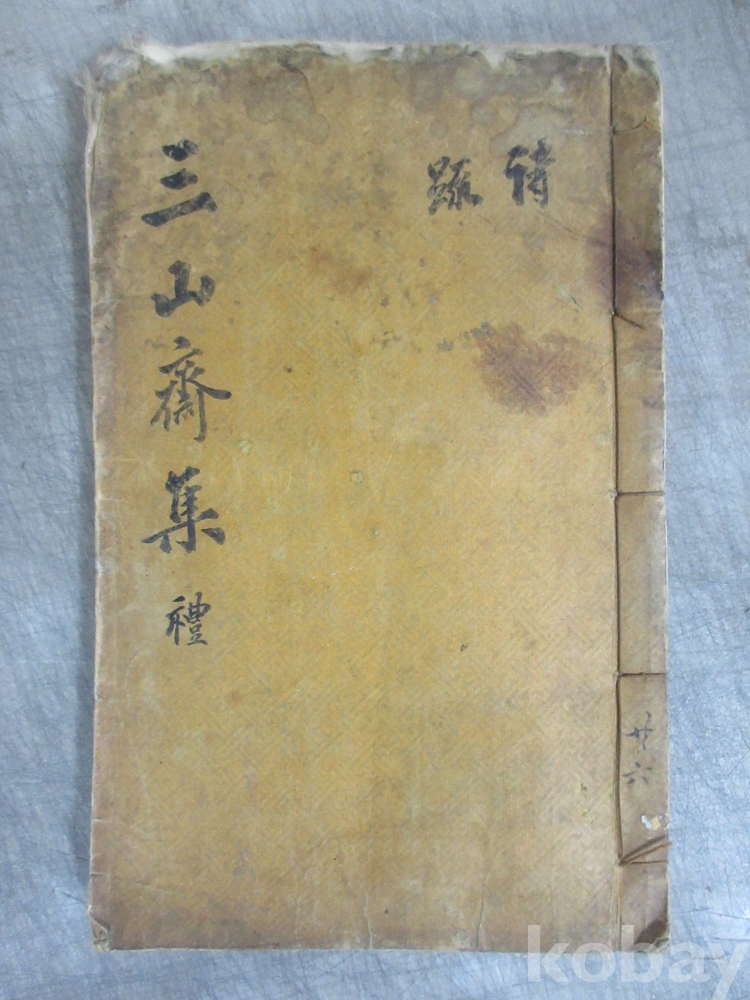 三山齋集 禮
詩
䟽
廿六
kobay